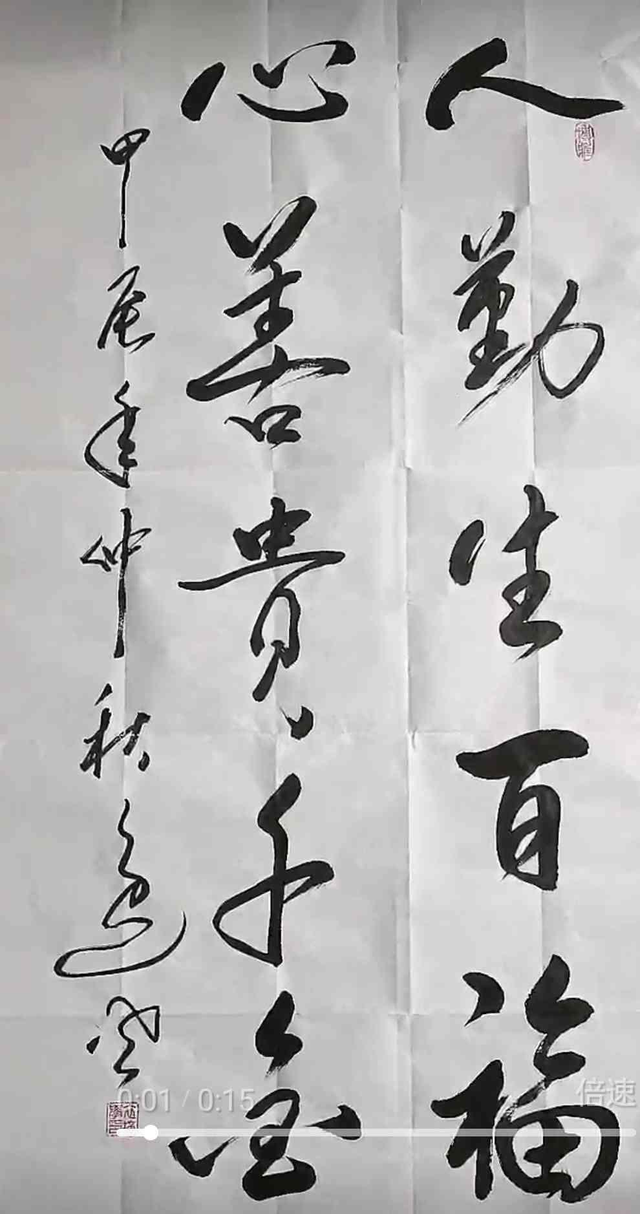 人勤生百福
心善貴千金
甲辰年仲秋
0:01 / 0:15
倍速